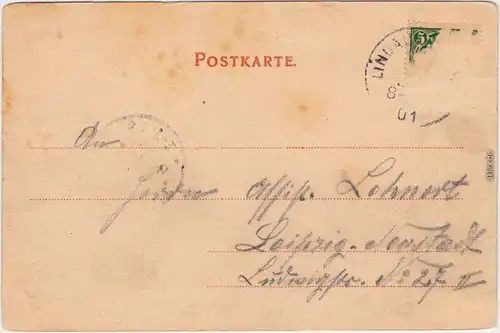 POSTKARTE.
5
LINDA
8
01
An
Herrn Assist. Lehnert
Leipzig-Neustadt
Ludwigstr. No 27 II